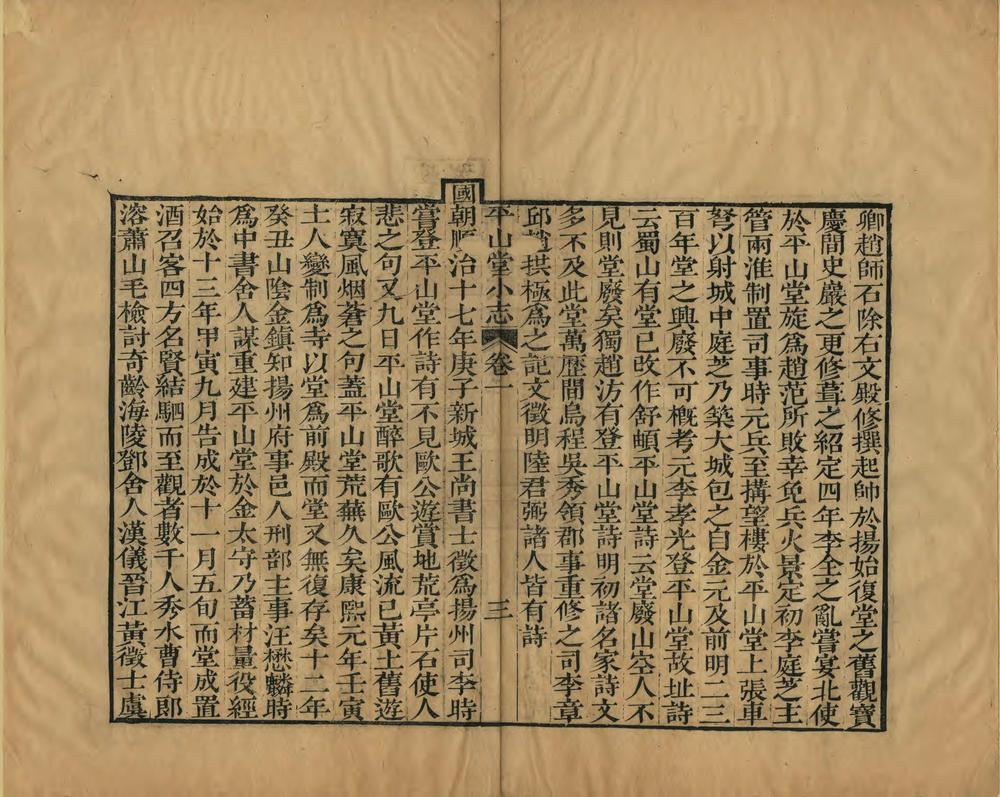 卿趙師石除右文殿修撰起帥於揚始復堂之舊觀寶
慶間史巖之更修葺之紹定四年李全之亂嘗宴北使
於平山堂旋爲趙范所敗幸免兵火景定初李庭芝主
管兩淮制置司事時元兵至搆望樓於平山堂上張車
弩以射城中庭芝乃築大城包之自金元及前明二三
百年堂之興廢不可槪考元李孝光登平山堂故址詩
云蜀山有堂已改作舒頔平山堂詩云堂廢山空人不
見則堂廢矣獨趙汸有登平山堂詩明初諸名家詩文
多不及此堂萬歷間烏程吳秀領郡事重修之司李章
邱趙拱極爲之記文徵明陸君弼諸人皆有詩
平山堂小志 卷一 三
國朝順治十七年庚子新城王尚書士徵爲揚州司李時
嘗登平山堂作詩有不見歐公遊賞地荒亭片石使人
悲之句又九日平山堂醉歌有歐公風流已黃土舊遊
寂寞風烟蒼之句蓋平山堂荒蕪久矣康熙元年壬寅
土人變制爲寺以堂爲前殿而堂又無復存矣十二年
癸丑山陰金鎮知揚州府事邑人刑部主事汪懋麟時
爲中書舍人謀重建平山堂於金太守乃蓄材量役經
始於十三年甲寅九月告成於十一月五旬而堂成置
酒召客四方名賢結駟而至觀者數千人秀水曹侍郎
溶蕭山毛檢討奇齡海陵鄧舍人漢儀晉江黃徵士虞